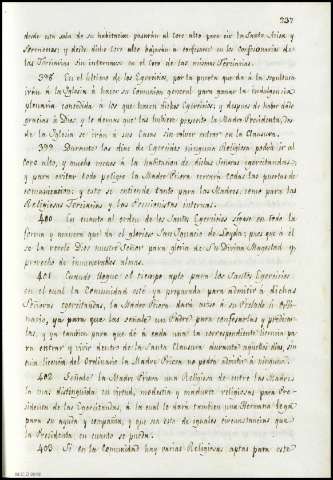 237
desde esta sala de su habitacion pasarán al Coro alto para oir la Santa Misa, y
Ceremonias; y desde dicho Coro bajarán á confesarse en los Confesonarios de
las Terciarias sin internarse en el Coro de las mismas Terciarias.
398 En el último de los Egercicios, por la puerta que dá á la
irán á la Iglesia á hacer su Comunion general para ganar la indulgencia
plenaria concedida á los que hacen dichos Egercicios; y despues de haber dado
gracias á Dios, y lo demas que las hubiere puesto la Madre Presidenta, des
de la Iglesia se irán á sus Casas sin volver entrar en la Clausura.
399 Durante los dias de Egercicios ninguna Religiosa podrá ir al
Coro alto, y mucho menos á la habitacion de dichas Señoras egercitandas;
y para evitar todo peligro la Madre Priora cerrará todas las puertas de
comunicacion; y esto se entiende tanto para las Madres, como para las
Religiosas Terciarias y las Pensionistas internas.
400 En cuanto al orden de los Santos Egercicios sigase en todo la
forma y manera que dá el glorioso San Ignacio de Loyola; pues que á él
se la reveló Dios nuestro Señor para gloria de Su Divina Magestad y
provecho de innumerables almas.
401 Cuando llegue el tiempo apto para los Santos Egercicios
en el cual la Comunidad esté ya preparada para admitir á dichas
Señoras egercitandas, la Madre Priora dará aviso á su Prelado ú Ordi-
nario, ya para que las señale un Padre para confesarlas y predicar-
las, y ya tambien para que dé á cada una la correspondiente licencia pa-
ra entrar y vivir dentro de la Santa Clausura durante aquellos dias, sin
cuya licencia del Ordinario la Madre Priora no podrá admitir á ninguna.
402 Señale la Madre Priora una Religiosa de entre las Madres
la mas distinguida en virtud, modestia y madurez religiosas para Pre-
sidenta de las Egercitandas, á la cual le dará tambien una Hermana lega
para su ayuda y compañia, y que sea de iguales circunstancias que
la Presidenta en cuanto se pueda.
403 Si en la Comunidad hay varias Religiosas aptas para este